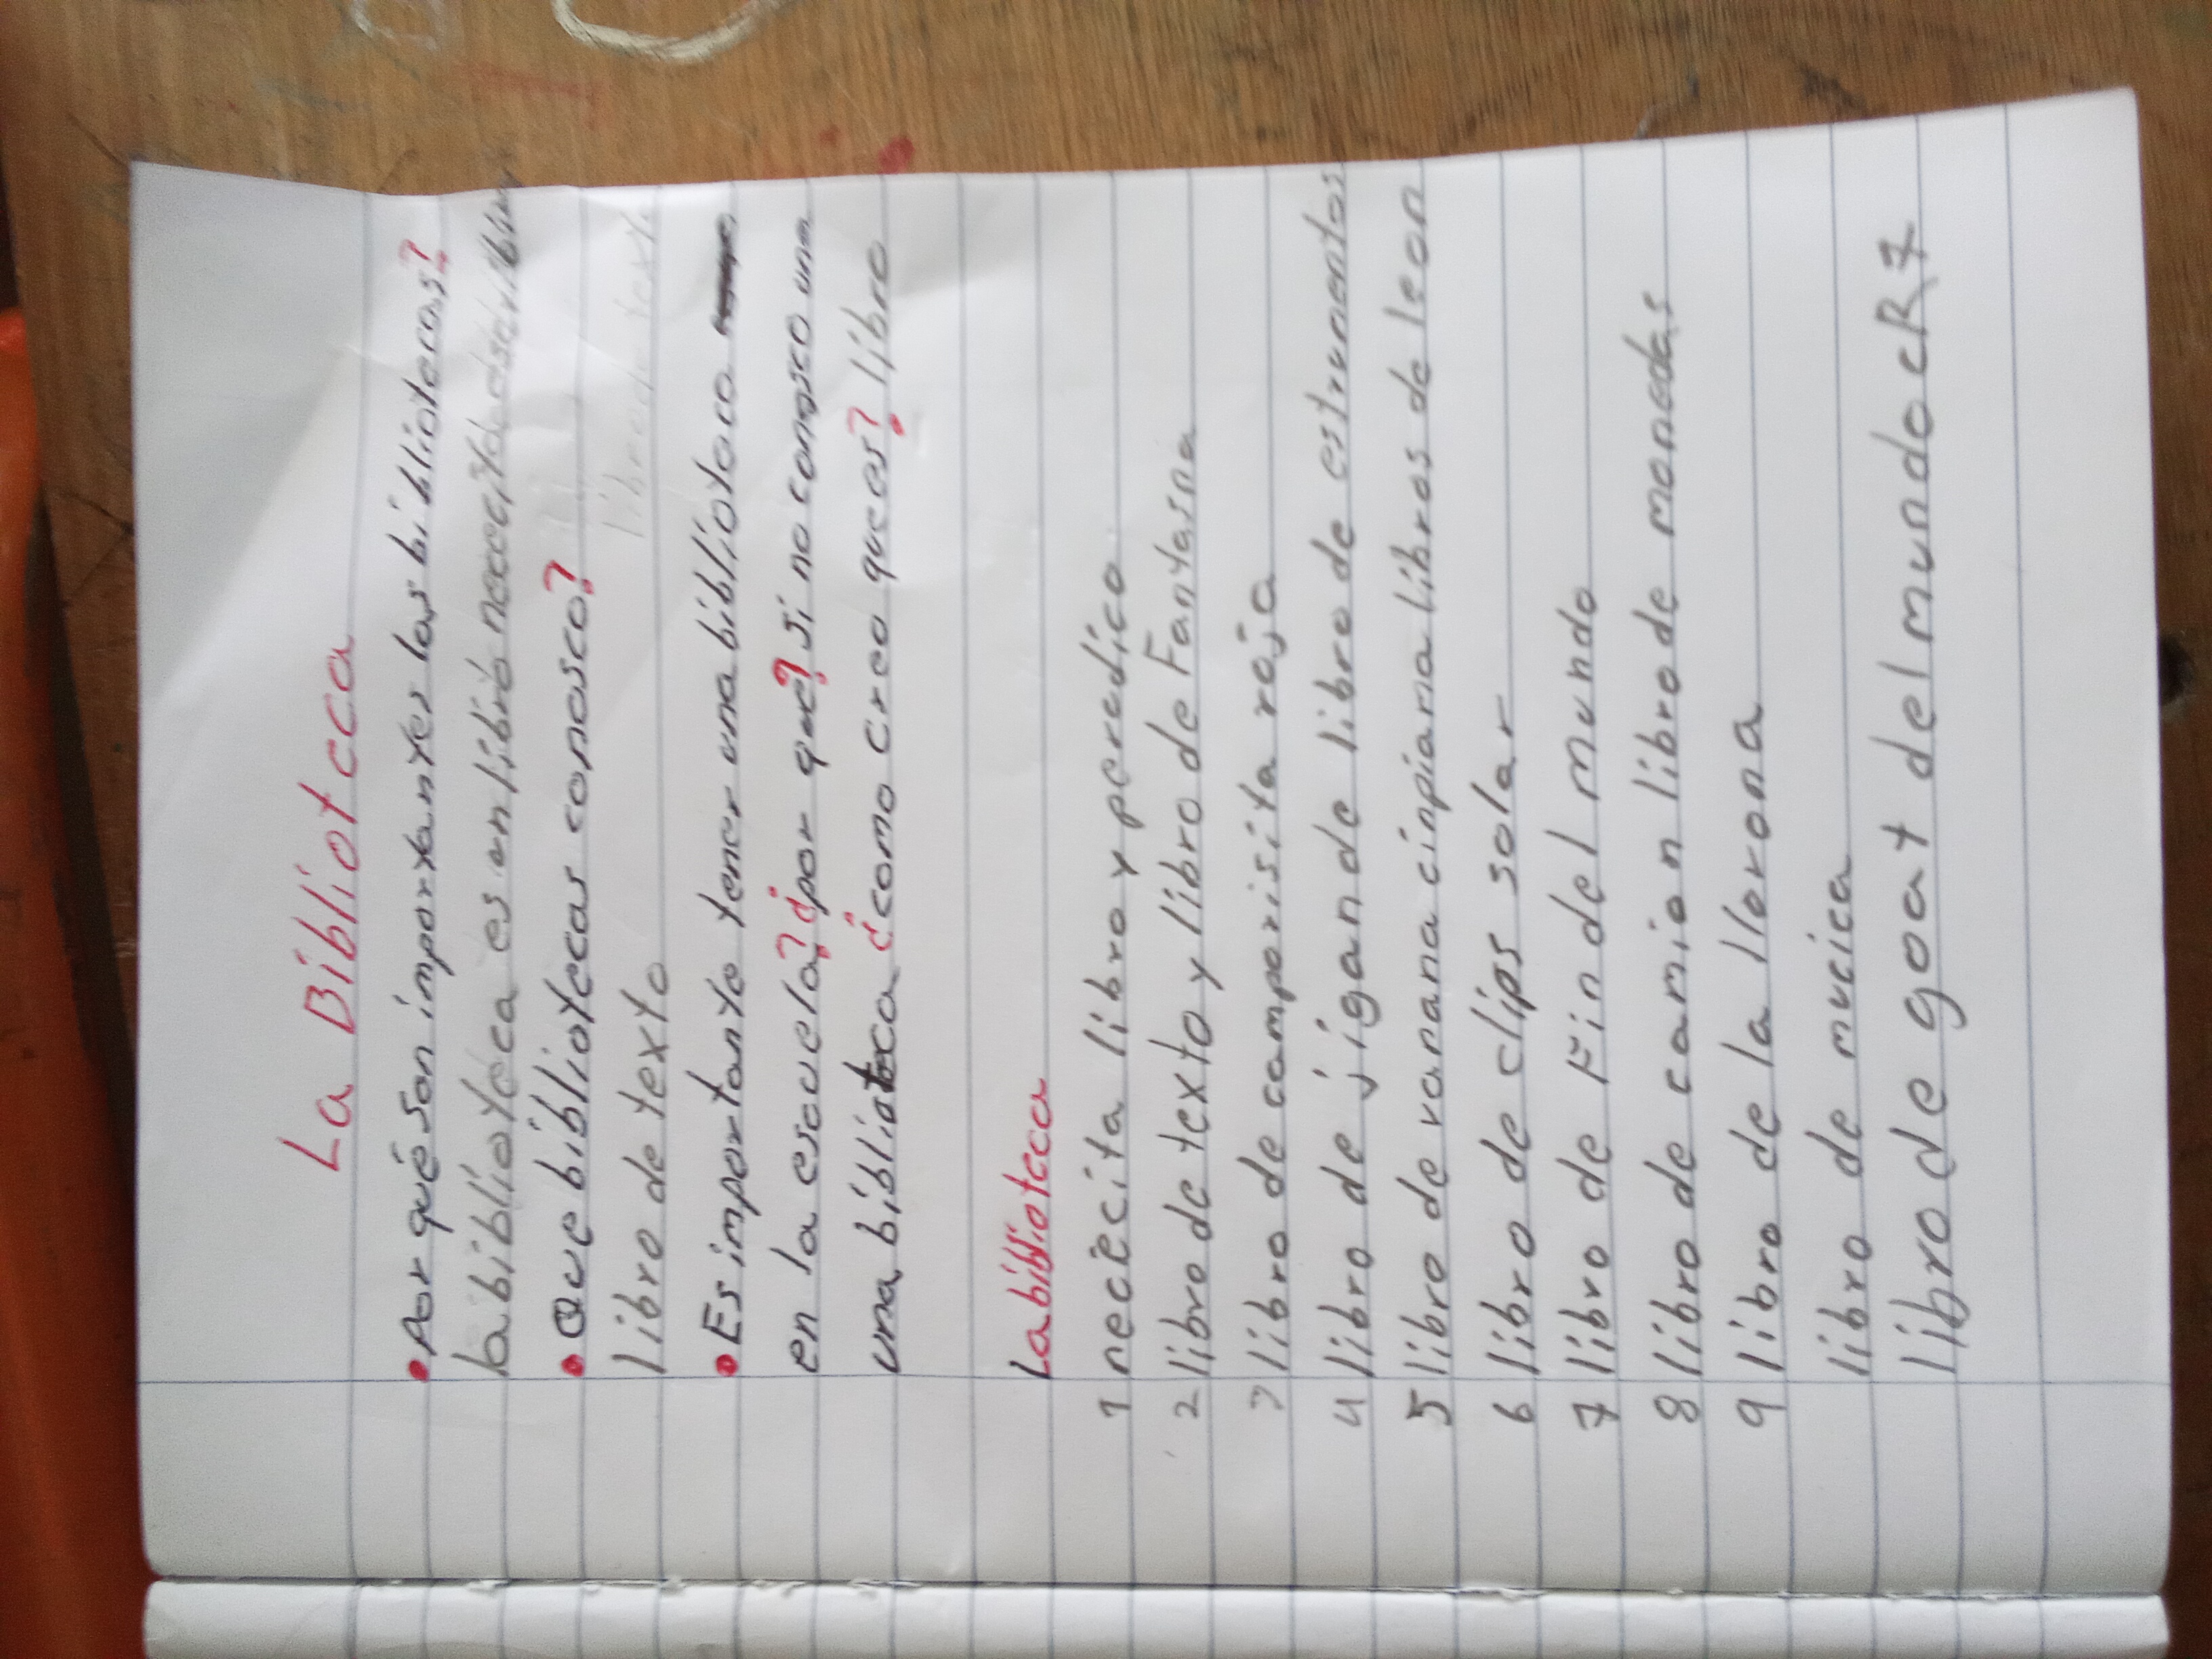 La Bibliotcca
• Por qué son importantes las bibliotecas?
la biblioteca es en libro
• Que bibliotecas conosco?
libro de texto
• Es importante tener una biblioteca
en la escuela? ¿por qué? Si no conosco una
una biblioteca ¿como creo que es? libro
La biblioteca
1 necècita libro y peredico
2 libro de texto y libro de Fantasma
3 libro de camporisita roja
4 libro de jigande libro de estrumentos
5 libro de vanana cinpiama libros de leon
6 libro de clips solar
7 libro de Fin del mundo
8 libro de camion libro de monedas
9 libro de la llorona
libro de mucica
libro de goat del mundo cR7